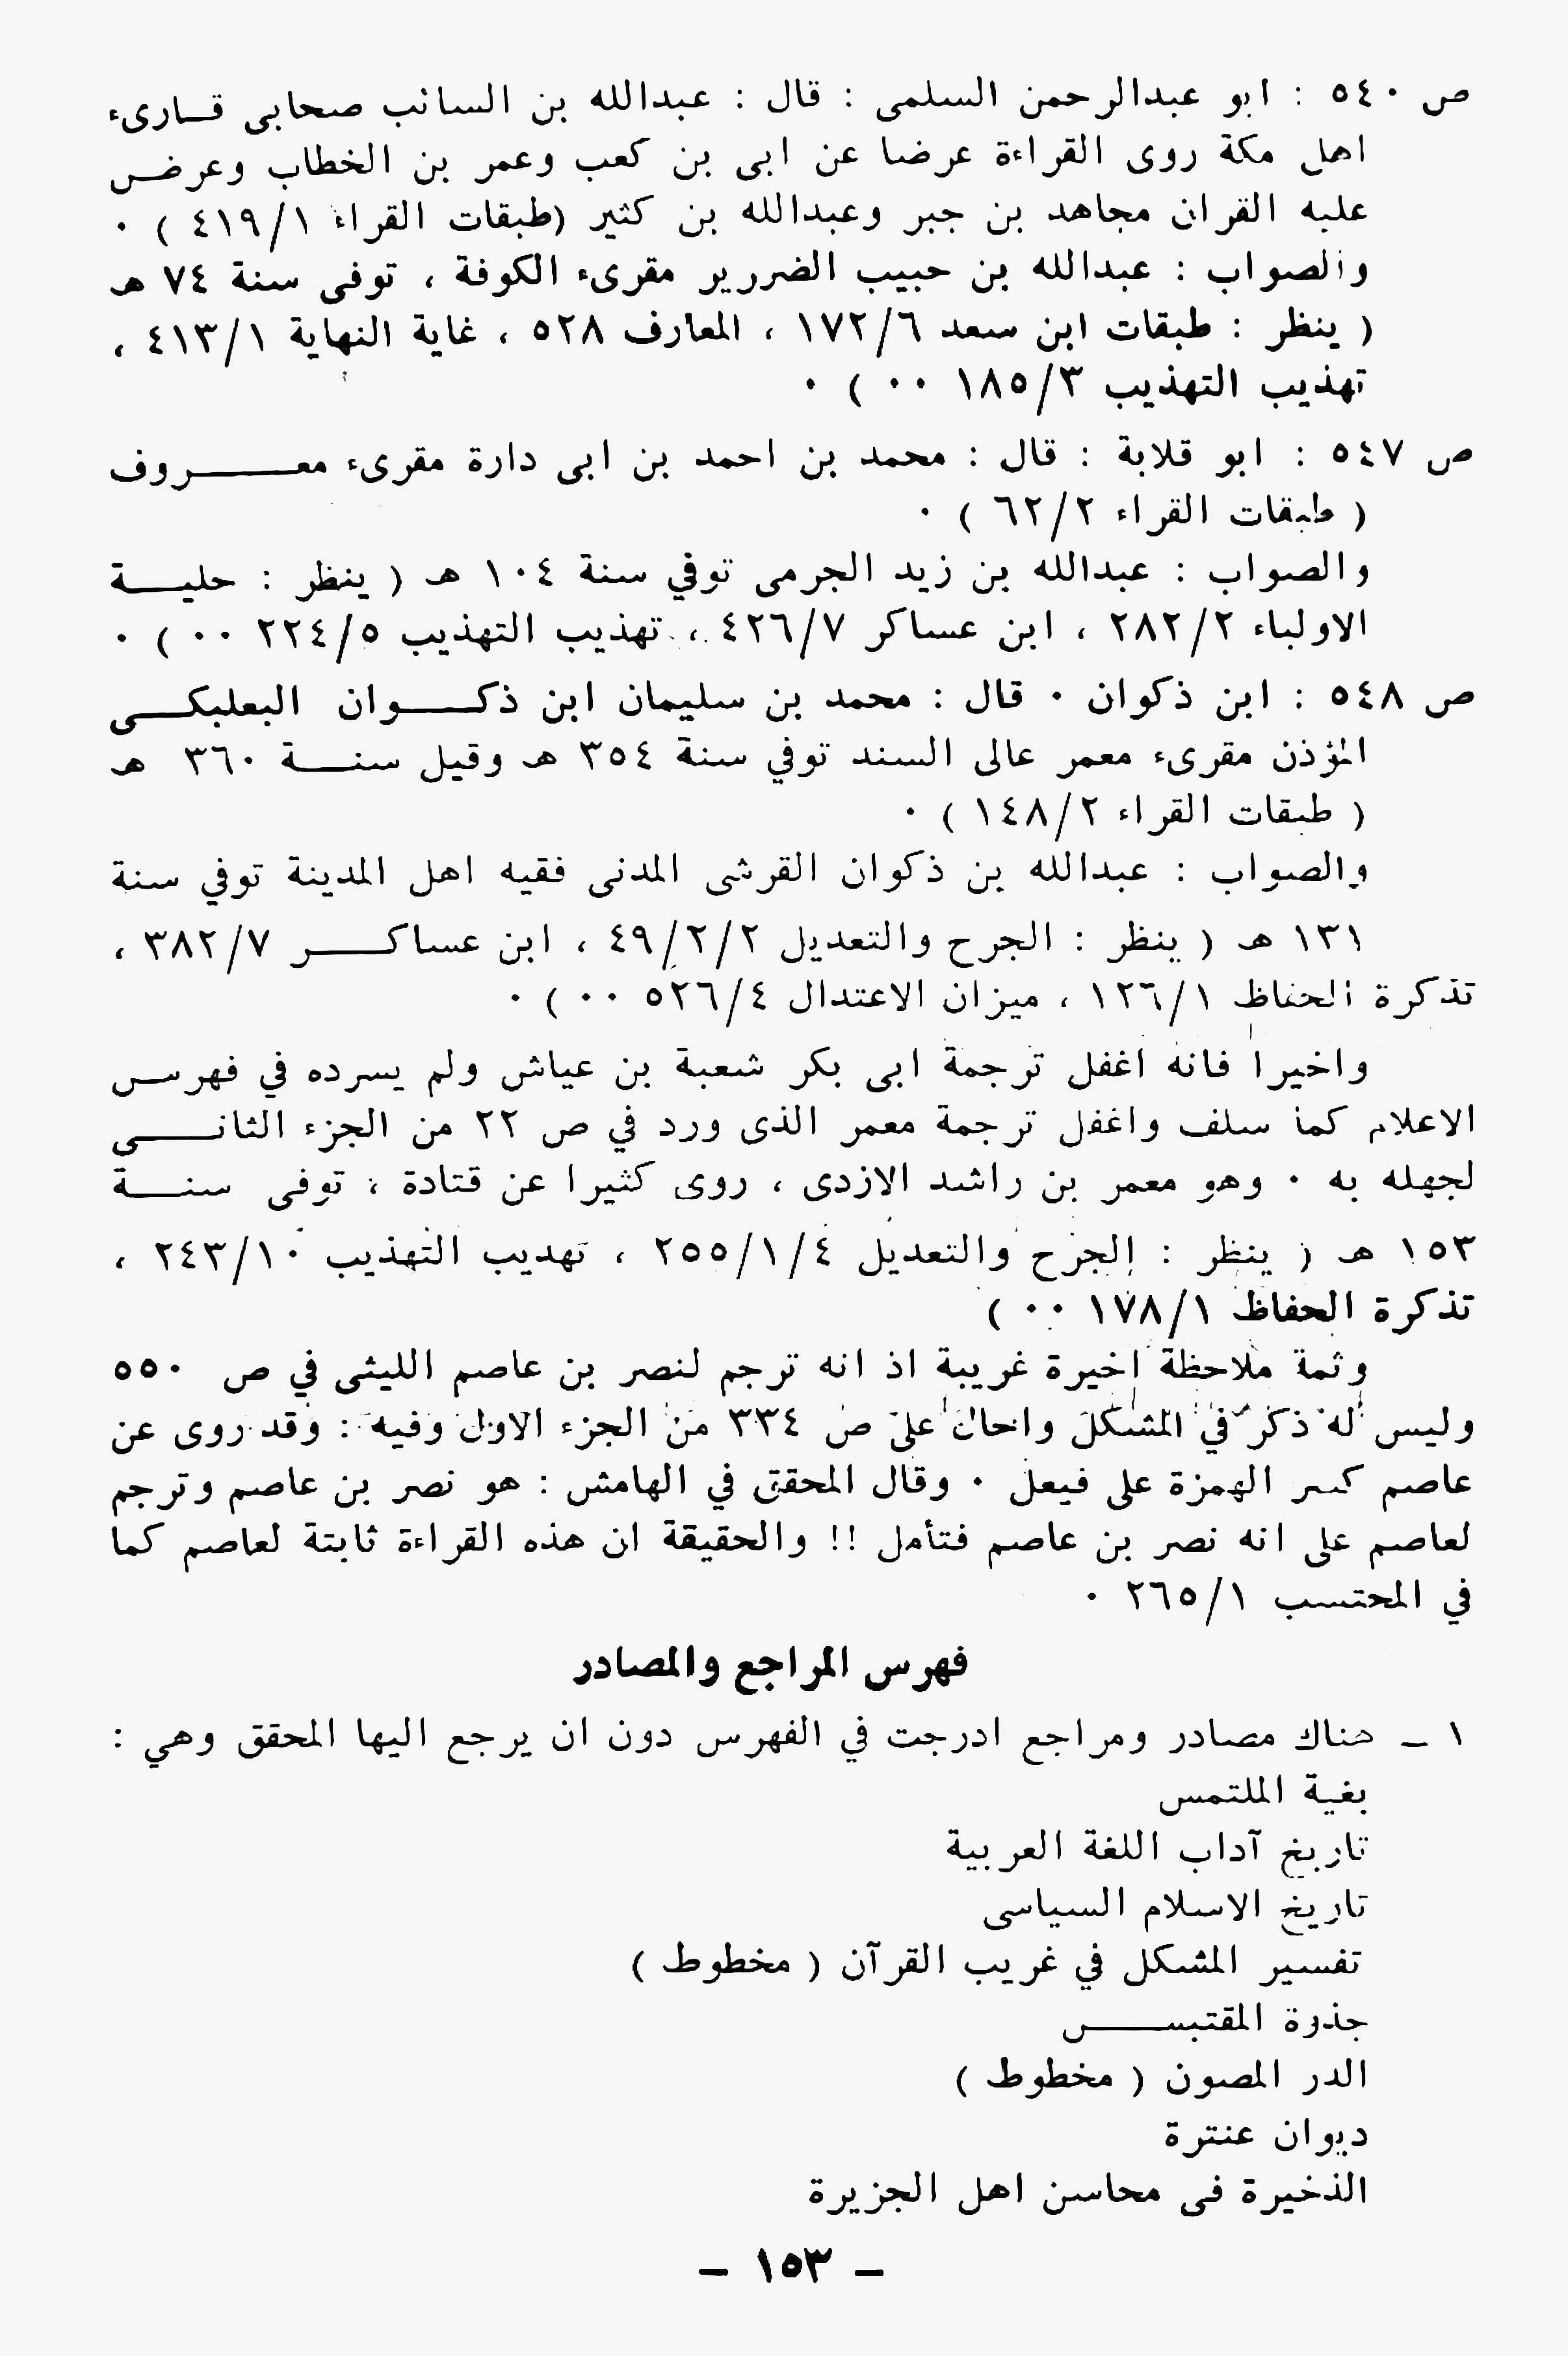 ص ٥٤٠ : ابو عبدالرحمن السلمى : قال : عبدالله بن السائب صحابى قـارىء
اهل مكة روى القراءة عرضا عن ابى بن كعب وعمر بن الخطاب وعرض
عليه القران مجاهد بن جبر وعبدالله بن كثير (طبقات القراء ٤١٩/١ ) ٠
والصواب : عبدالله بن حبيب الضررير مقرىء الكوفة ، توفى سنة ٧٤ هـ
( ينظر : طبقات ابن سعد ١٧٢/٦ ، المعارف ٥٢٨ ، غاية النهاية ٤١٣/١ ،
تهذيب التهذيب ١٨٥/٣ ٠٠ ) ٠
ص ٥٤٧ : ابو قلابة : قال : محمد بن احمد بن ابى دارة مقرىء معــــروف
( طبقات القراء ٦٢/٢ ) ٠
والصواب : عبدالله بن زيد الجرمى توفي سنة ١٠٤ هـ ( ينظر : حليــة
الاولياء ٢٨٢/٢ ، ابن عساكر ٤٢٦/٧ ، تهذيب التهذيب ٢٢٤/٥ ٠٠ ) ٠
ص ٥٤٨ : ابن ذكوان ٠ قال : محمد بن سليمان ابن ذكــوان البعلبكــى
المؤذن مقرىء معمر عالى السند توفي سنة ٣٥٤ هـ وقيل سنــة ٣٦٠ هـ
( طبقات القراء ١٤٨/٢ ) ٠
والصواب : عبدالله بن ذكوان القرشى المدنى فقيه اهل المدينة توفي سنة
١٣١ هـ ( ينظر : الجرح والتعديل ٤٩/٢/٢ ، ابن عساكــــر ٣٨٢/٧ ،
تذكرة الحفاظ ١٢٦/١ ، ميزان الاعتدال ٥٢٦/٤ ٠٠ ) ٠
واخيرا فانه اغفل ترجمة ابى بكر شعبة بن عياش ولم يسرده في فهرس
الاعلام كما سلف واغفل ترجمة معمر الذى ورد في ص ٢٢ من الجزء الثانــى
لجهله به ٠ وهو معمر بن راشد الازدى ، روى كثيرا عن قتادة ، توفى سنــة
١٥٣ هـ ( ينظر : الجرح والتعديل ٢٥٥/١/٤ ، تهديب التهذيب ٢٤٣/١٠ ،
تذكرة الحفاظ ١٧٨/١ ٠٠ )
وثمة ملاحظة اخيرة غريبة اذ انه ترجم لنصر بن عاصم الليثى في ص ٥٥٠
وليس له ذكر في المشكل واحال على ص ٣٣٤ من الجزء الاول وفيه : وقد روى عن
عاصم كسر الهمزة على فيعل ٠ وقال المحقق في الهامش : هو نصر بن عاصم وترجم
لعاصم على انه نصر بن عاصم فتأمل !! والحقيقة ان هذه القراءة ثابتة لعاصم كما
في المحتسب ٢٦٥/١ ٠
فهرس المراجع والمصادر
١ ـ هناك مصادر ومراجع ادرجت في الفهرس دون ان يرجع اليها المحقق وهي :
بغية الملتمس
تاريخ آداب اللغة العربية
تاريخ الاسلام السياسى
تفسير المشكل في غريب القرآن ( مخطوط )
جذوة المقتبــــس
الدر المصون ( مخطوط )
ديوان عنترة
الذخيرة فى محاسن اهل الجزيرة
ـ ١٥٣ ـ